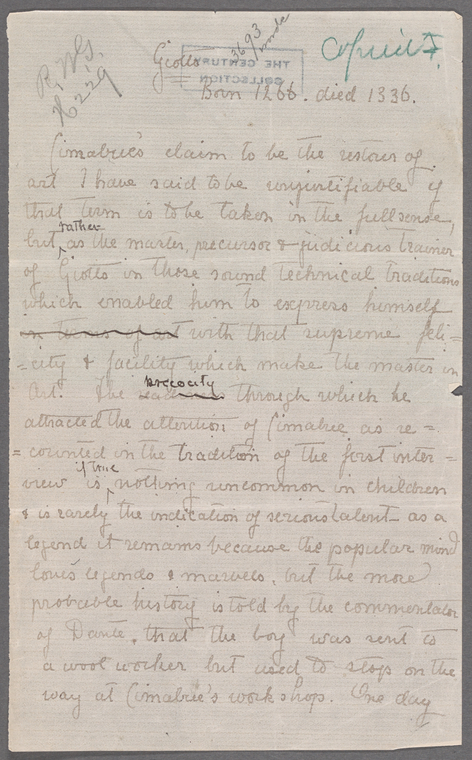 3693
words
Copied
R. W's.
229
Giotto
THE CENTURY
COLLECTION
Born 1266. died 1336.
Cimabue's claim to be the restorer of
art I have said to be unjustifiable if
that term is to be taken in the full sense,
but rather as the master, precursor & judicious trainer
of Giotto in those sound technical traditions
which enabled him to express himself
in terms of art with that supreme feli=
=city & facility which make the master in
Art. The precocity through which he
attracted the attention of Cimabue as re=
=counted in the tradition of the first inter=
view if true is nothing uncommon in children
& is rarely the indication of serious talent as a
legend it remains because the popular mind
loves legends & marvels, but the more
probable history is told by the commentator
of Dante, that the boy was sent to
a wool worker but used to stop on the
way at Cimabue's workshop. One day